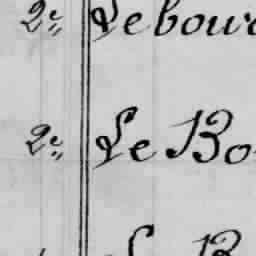 2e Lebour
2e Le Bo